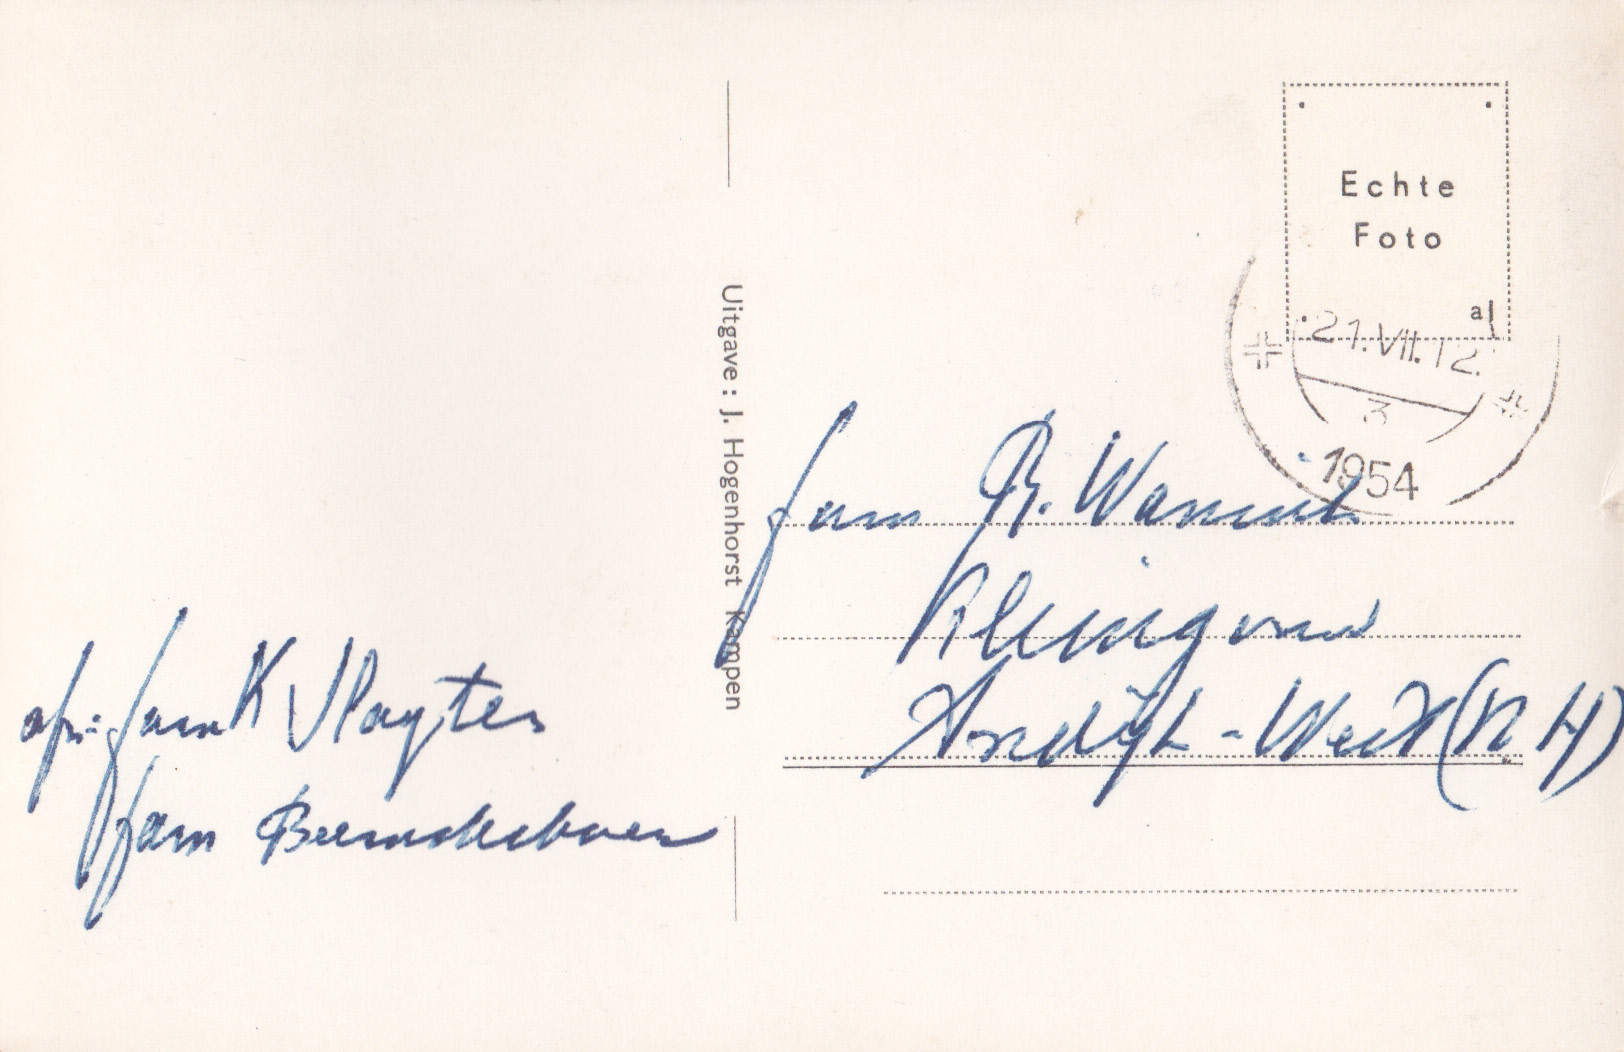 Echte
Foto
al
21.VII.12.
3
1954
Uitgave : J. Hogenhorst Kampen
fam R.
Andijk-West (N H)
afz: fam K Slagter
fam